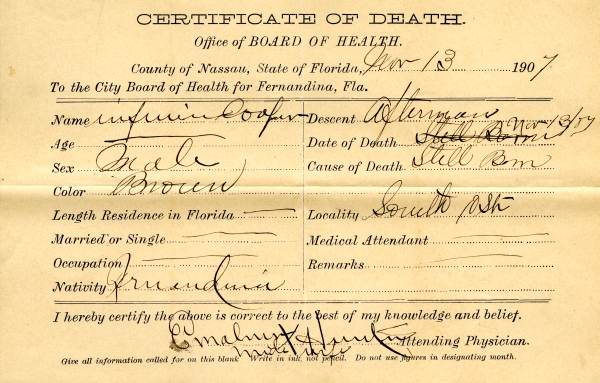 CERTIFICATE OF DEATH.
Office of BOARD OF HEALTH.
County of Nassau, State of Florida, Nov 13 1907
To the City Board of Health for Fernandina, Fla.
Name Cooper Descent
Age Date of Death Still Born Nov 13/07
Sex Male Cause of Death Still Born
Color Brown
Length Residence in Florida — Locality South 
Married or Single — Medical Attendant —
Occupation — Remarks —
Nativity Fernandina
I hereby certify the above is correct to the best of my knowledge and belief.
Attending Physician.
midwife
Give all information called for on this blank Write in ink, not pencil. Do not use figures in designating month.